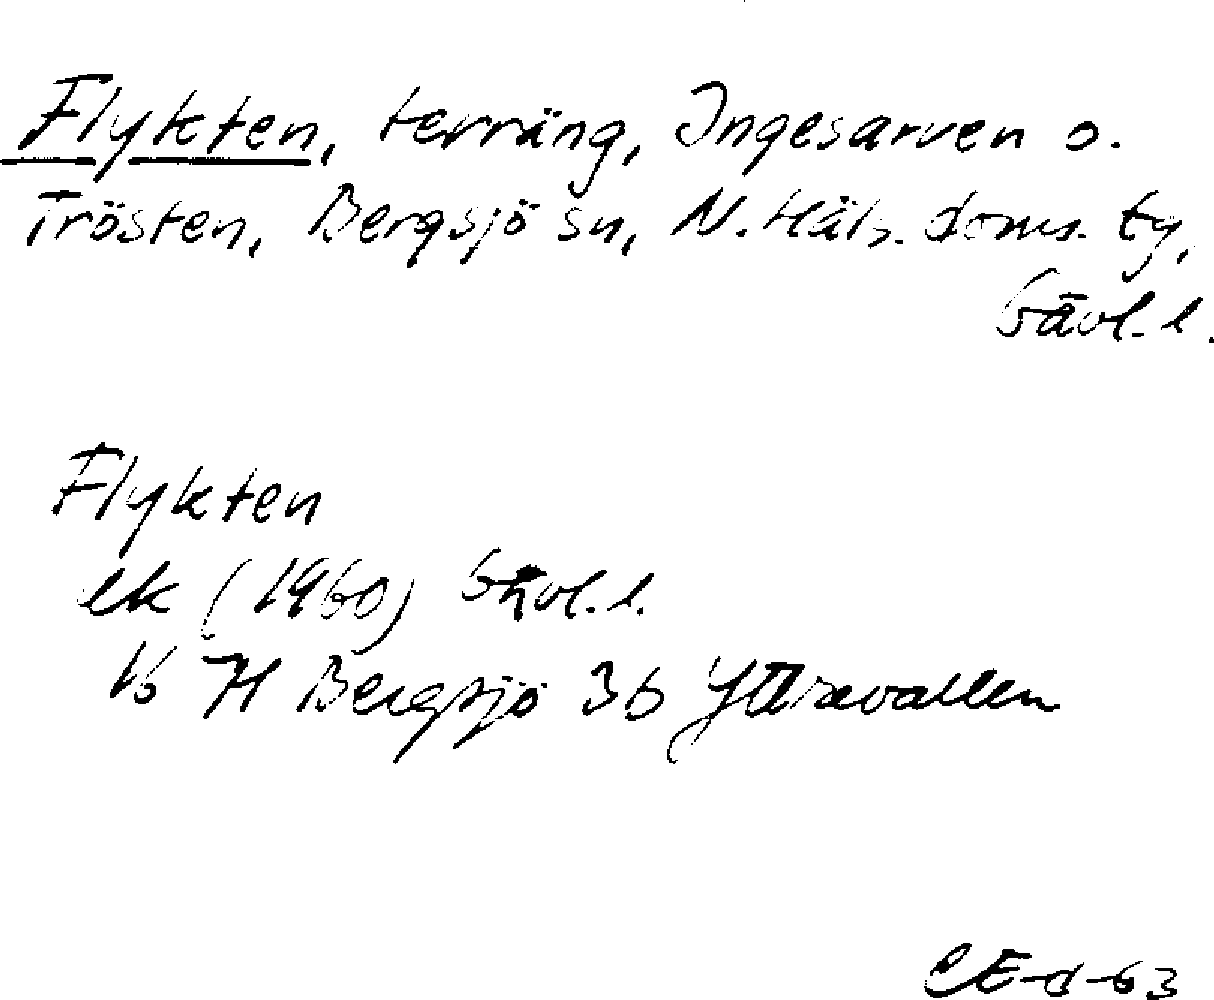 Flykten, terräng, Ingesarven o.
Trösten, Bergsjö sn, N. Häls. doms. ty,
Gävl. l.
Flykten
ek (1960) Gävl. l.
16 H Bergsjö 3b Yttrevallen
CE-d-63